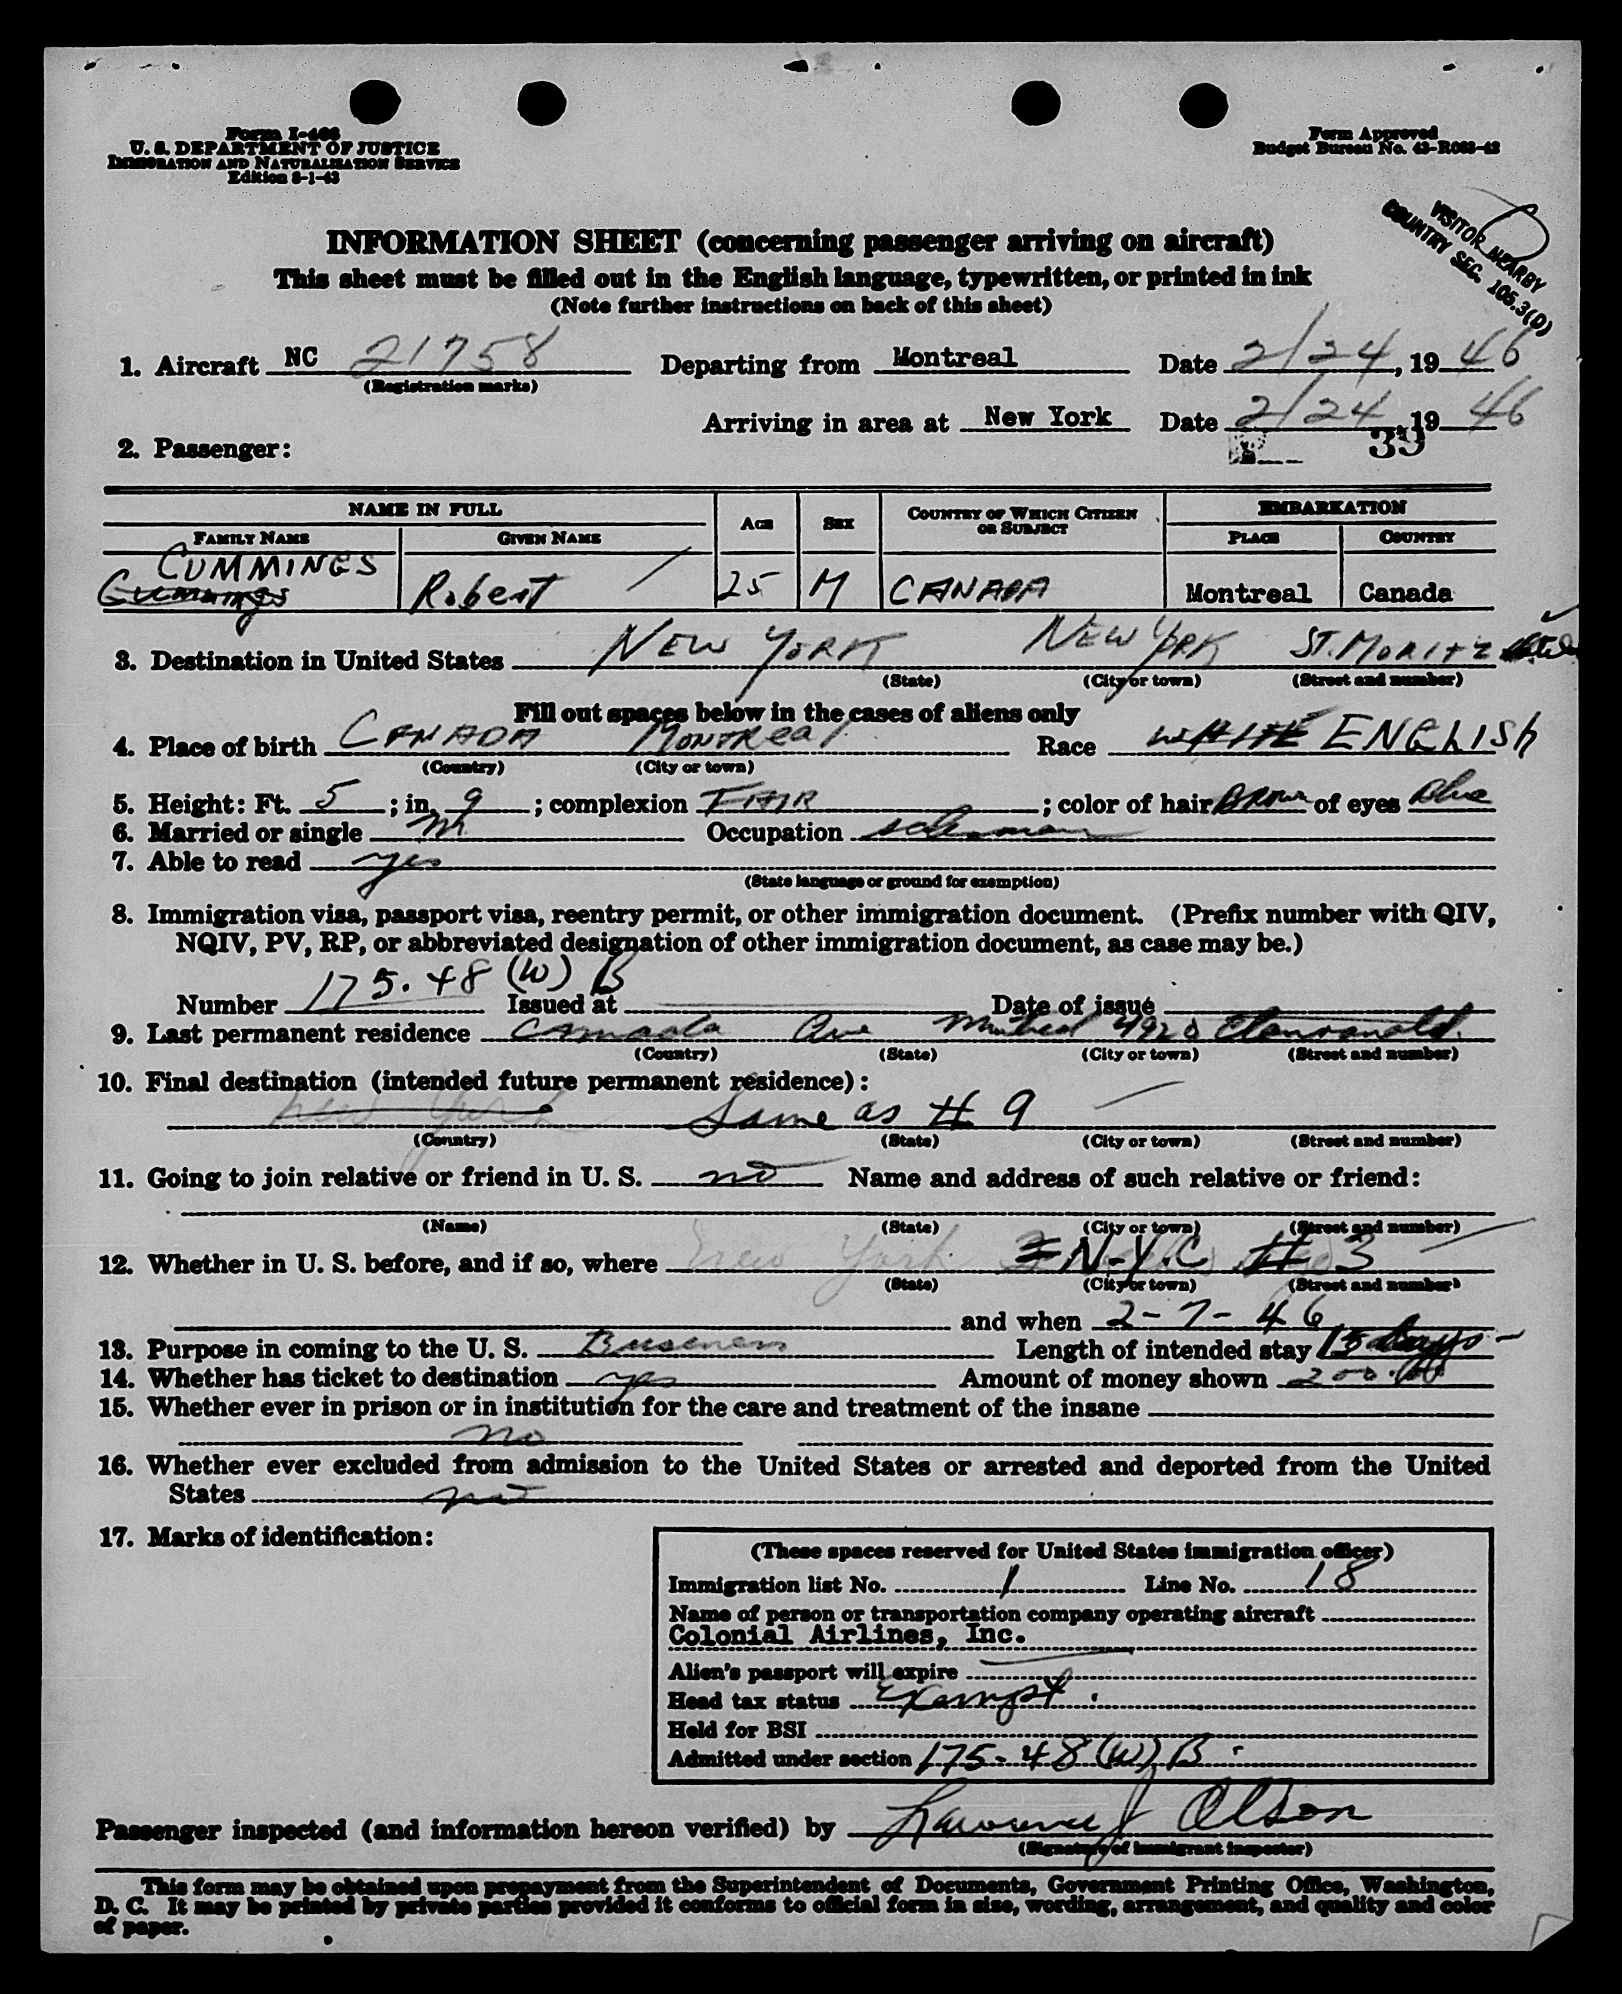 Form I-466
U. S. DEPARTMENT OF JUSTICE
IMMIGRATION AND NATURALIZATION SERVICE
Edition 8-1-43
Form Approved
Budget Bureau No. 43-R063-42
VISITOR NEARBY
COUNTRY SEC. 105.3(D)
INFORMATION SHEET (concerning passenger arriving on aircraft)
This sheet must be filled out in the English language, typewritten, or printed in ink
(Note further instructions on back of this sheet)
1. Aircraft NC 21758 Departing from Montreal Date 2/24, 1946
(Registration marks)
Arriving in area at New York Date 2/24, 1946
39
2. Passenger:
NAME IN FULL AGE SEX COUNTRY OF WHICH CITIZEN OR SUBJECT EMBARKATION
FAMILY NAME GIVEN NAME PLACE COUNTRY
CUMMINGS
Cummings Robert 25 M CANADA Montreal Canada
3. Destination in United States NEW YORK NEW YORK ST. MORITZ
(State) (City or town) (Street and number)
Fill out spaces below in the cases of aliens only
4. Place of birth CANADA MONTREAL Race WHITE ENGLISH
(Country) (City or town)
5. Height: Ft. 5; in. 9; complexion FAIR; color of hair Brown of eyes Blue
6. Married or single M Occupation salesman
7. Able to read yes
(State language or ground for exemption)
8. Immigration visa, passport visa, reentry permit, or other immigration document. (Prefix number with QIV,
NQIV, PV, RP, or abbreviated designation of other immigration document, as case may be.)
Number 175.48 (W) B Issued at Date of issue
9. Last permanent residence Canada Que Montreal 4920
(Country) (State) (City or town) (Street and number)
10. Final destination (intended future permanent residence):
New York Same as # 9
(Country) (State) (City or town) (Street and number)
11. Going to join relative or friend in U. S. no Name and address of such relative or friend:
(Name) (State) (City or town) (Street and number)
12. Whether in U. S. before, and if so, where New York N.Y.C # 3
(State) (City or town) (Street and number)
and when 2-7-46
13. Purpose in coming to the U. S. Business Length of intended stay 15 days
14. Whether has ticket to destination yes Amount of money shown 200.00
15. Whether ever in prison or in institution for the care and treatment of the insane
no
16. Whether ever excluded from admission to the United States or arrested and deported from the United
States no
17. Marks of identification:
(These spaces reserved for United States immigration officer)
Immigration list No. 1 Line No. 18
Name of person or transportation company operating aircraft
Colonial Airlines, Inc.
Alien's passport will expire
Head tax status Exempt.
Held for BSI
Admitted under section 175-48 (W) B.
Passenger inspected (and information hereon verified) by Lawrence J Olson
(Signature of immigrant inspector)
This form may be obtained upon prepayment from the Superintendent of Documents, Government Printing Office, Washington,
D. C. It may be printed by private parties provided it conforms to official form in size, wording, arrangement, and quality and color
of paper.